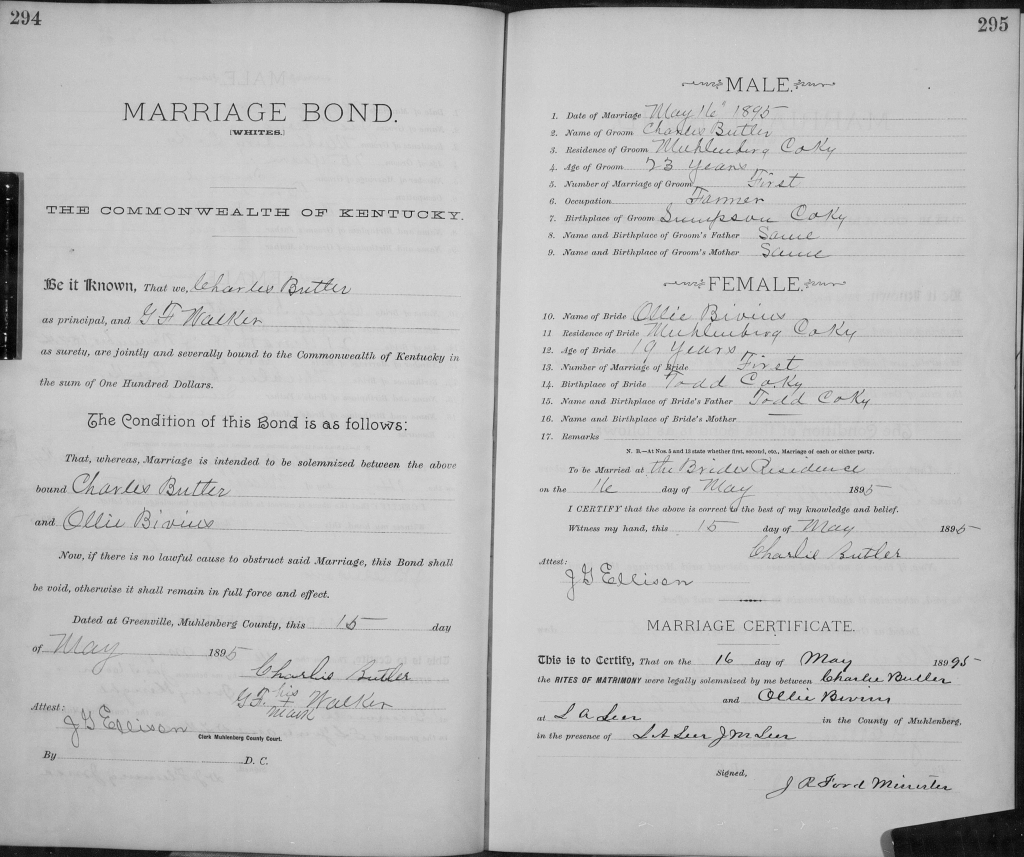 294
MARRIAGE BOND.
[WHITES.]
THE COMMONWEALTH OF KENTUCKY.
Be it Known, That we, Charles Butler
as principal, and G F Walker
as surety, are jointly and severally bound to the Commonwealth of Kentucky in
the sum of One Hundred Dollars.
The Condition of this Bond is as follows:
That, whereas, Marriage is intended to be solemnized between the above
bound Charles Butler
and Ollie Bivins
Now, if there is no lawful cause to obstruct said Marriage, this Bond shall
be void, otherwise it shall remain in full force and effect.
Dated at Greenville, Muhlenberg County, this 15 day
of May 1895
Charlie Butler
G F. his Walker
mark
Attest:
J G Ellison
Clerk Muhlenberg County Court.
By D. C.
295
MALE.
1. Date of Marriage May 16" 1895
2. Name of Groom Charles Butler
3. Residence of Groom Muhlenberg Co Ky
4. Age of Groom 23 years
5. Number of Marriage of Groom First
6. Occupation Farmer
7. Birthplace of Groom Simpson Co Ky
8. Name and Birthplace of Groom's Father Same
9. Name and Birthplace of Groom's Mother Same
FEMALE.
10. Name of Bride Ollie Bivins
11 Residence of Bride Muhlenberg Co Ky
12. Age of Bride 19 years
13. Number of Marriage of Bride First
14. Birthplace of Bride Todd Co Ky
15. Name and Birthplace of Bride's Father Todd Co Ky
16. Name and Birthplace of Bride's Mother —
17. Remarks
N. B.—At Nos. 5 and 13 state whether first, second, etc., Marriage of each or either party.
To be Married at the Brides Residence
on the 16 day of May 1895
I CERTIFY that the above is correct to the best of my knowledge and belief.
Witness my hand, this 15 day of May 1895
Charlie Butler
Attest:
J G Ellison
MARRIAGE CERTIFICATE.
This is to Certify, That on the 16 day of May 18995
the RITES OF MATRIMONY were legally solemnized by me between Charlie Butler
and Ollie Bivins
at L A Leer in the County of Muhlenberg,
in the presence of L A Leer J M Leer
Signed,
J R Ford Minister